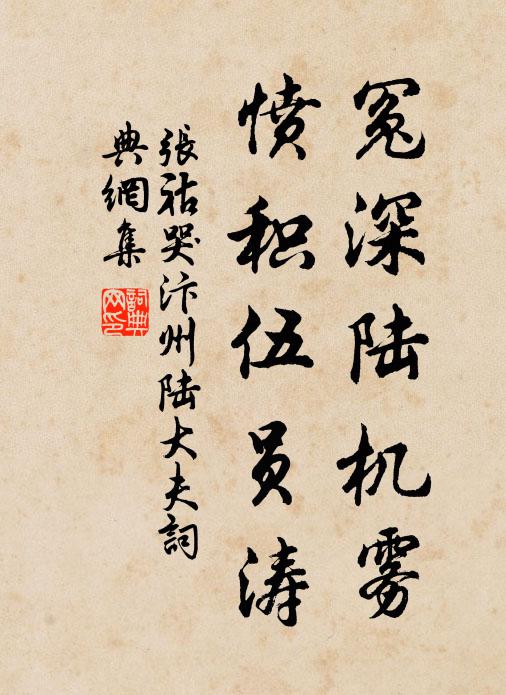 冤深陆机雾
愤积伍员涛
張祜哭汴州陆大夫詞
典網集
詞典网印